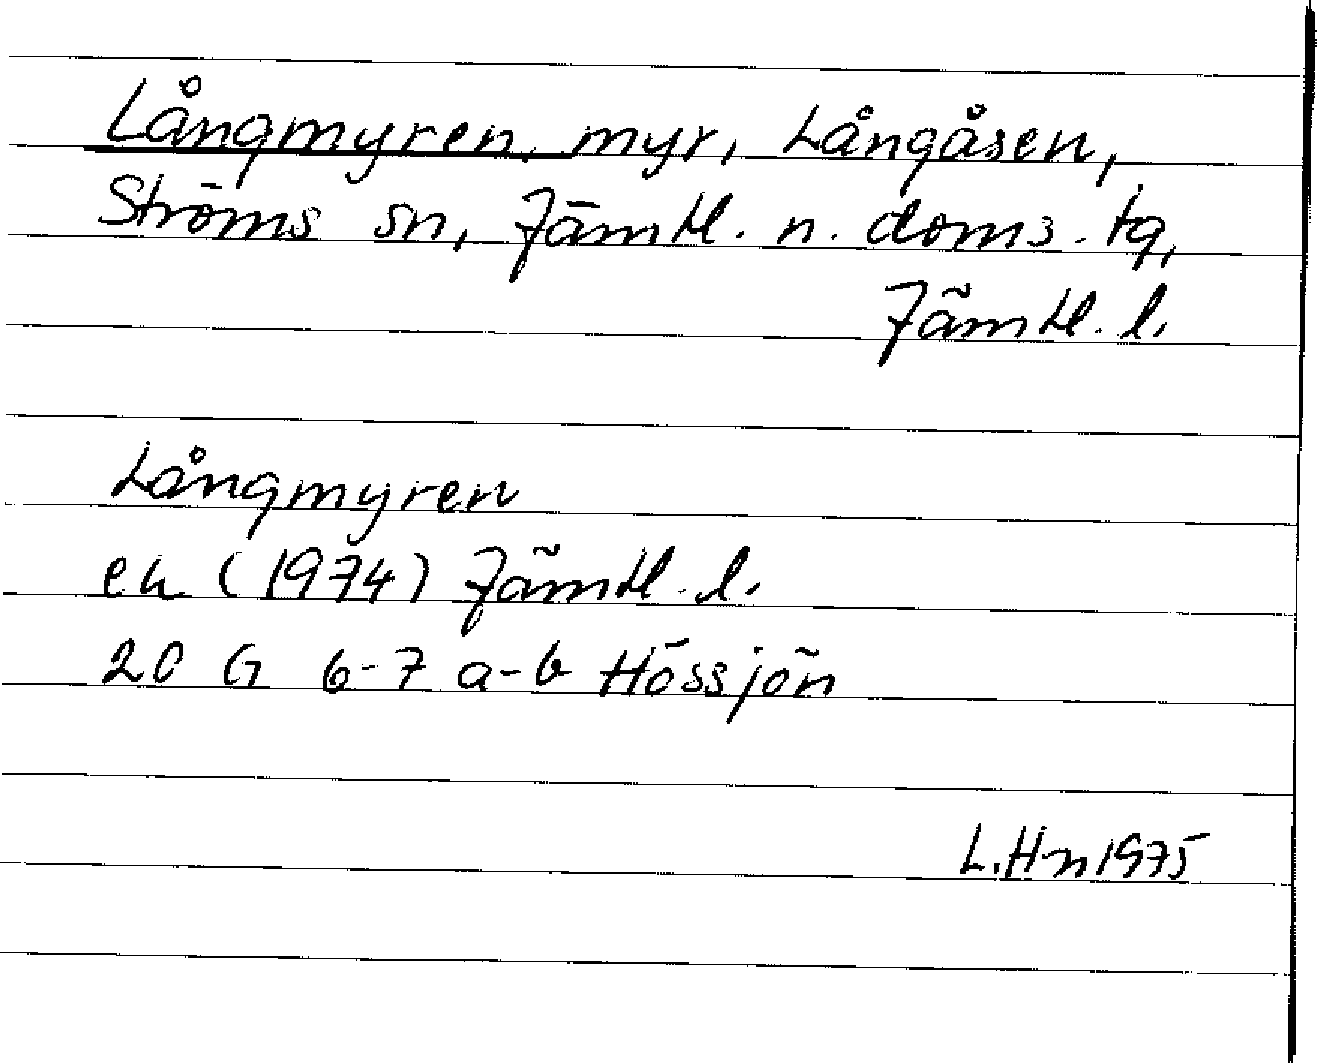 Långmyren, myr, Långåsen,
Ströms sn, Jämtl. n. doms. tg,
Jämtl. l.
Långmyren
ek (1974) Jämtl. l.
20 G 6-7 a-b Hössjön
L. Hn 1975